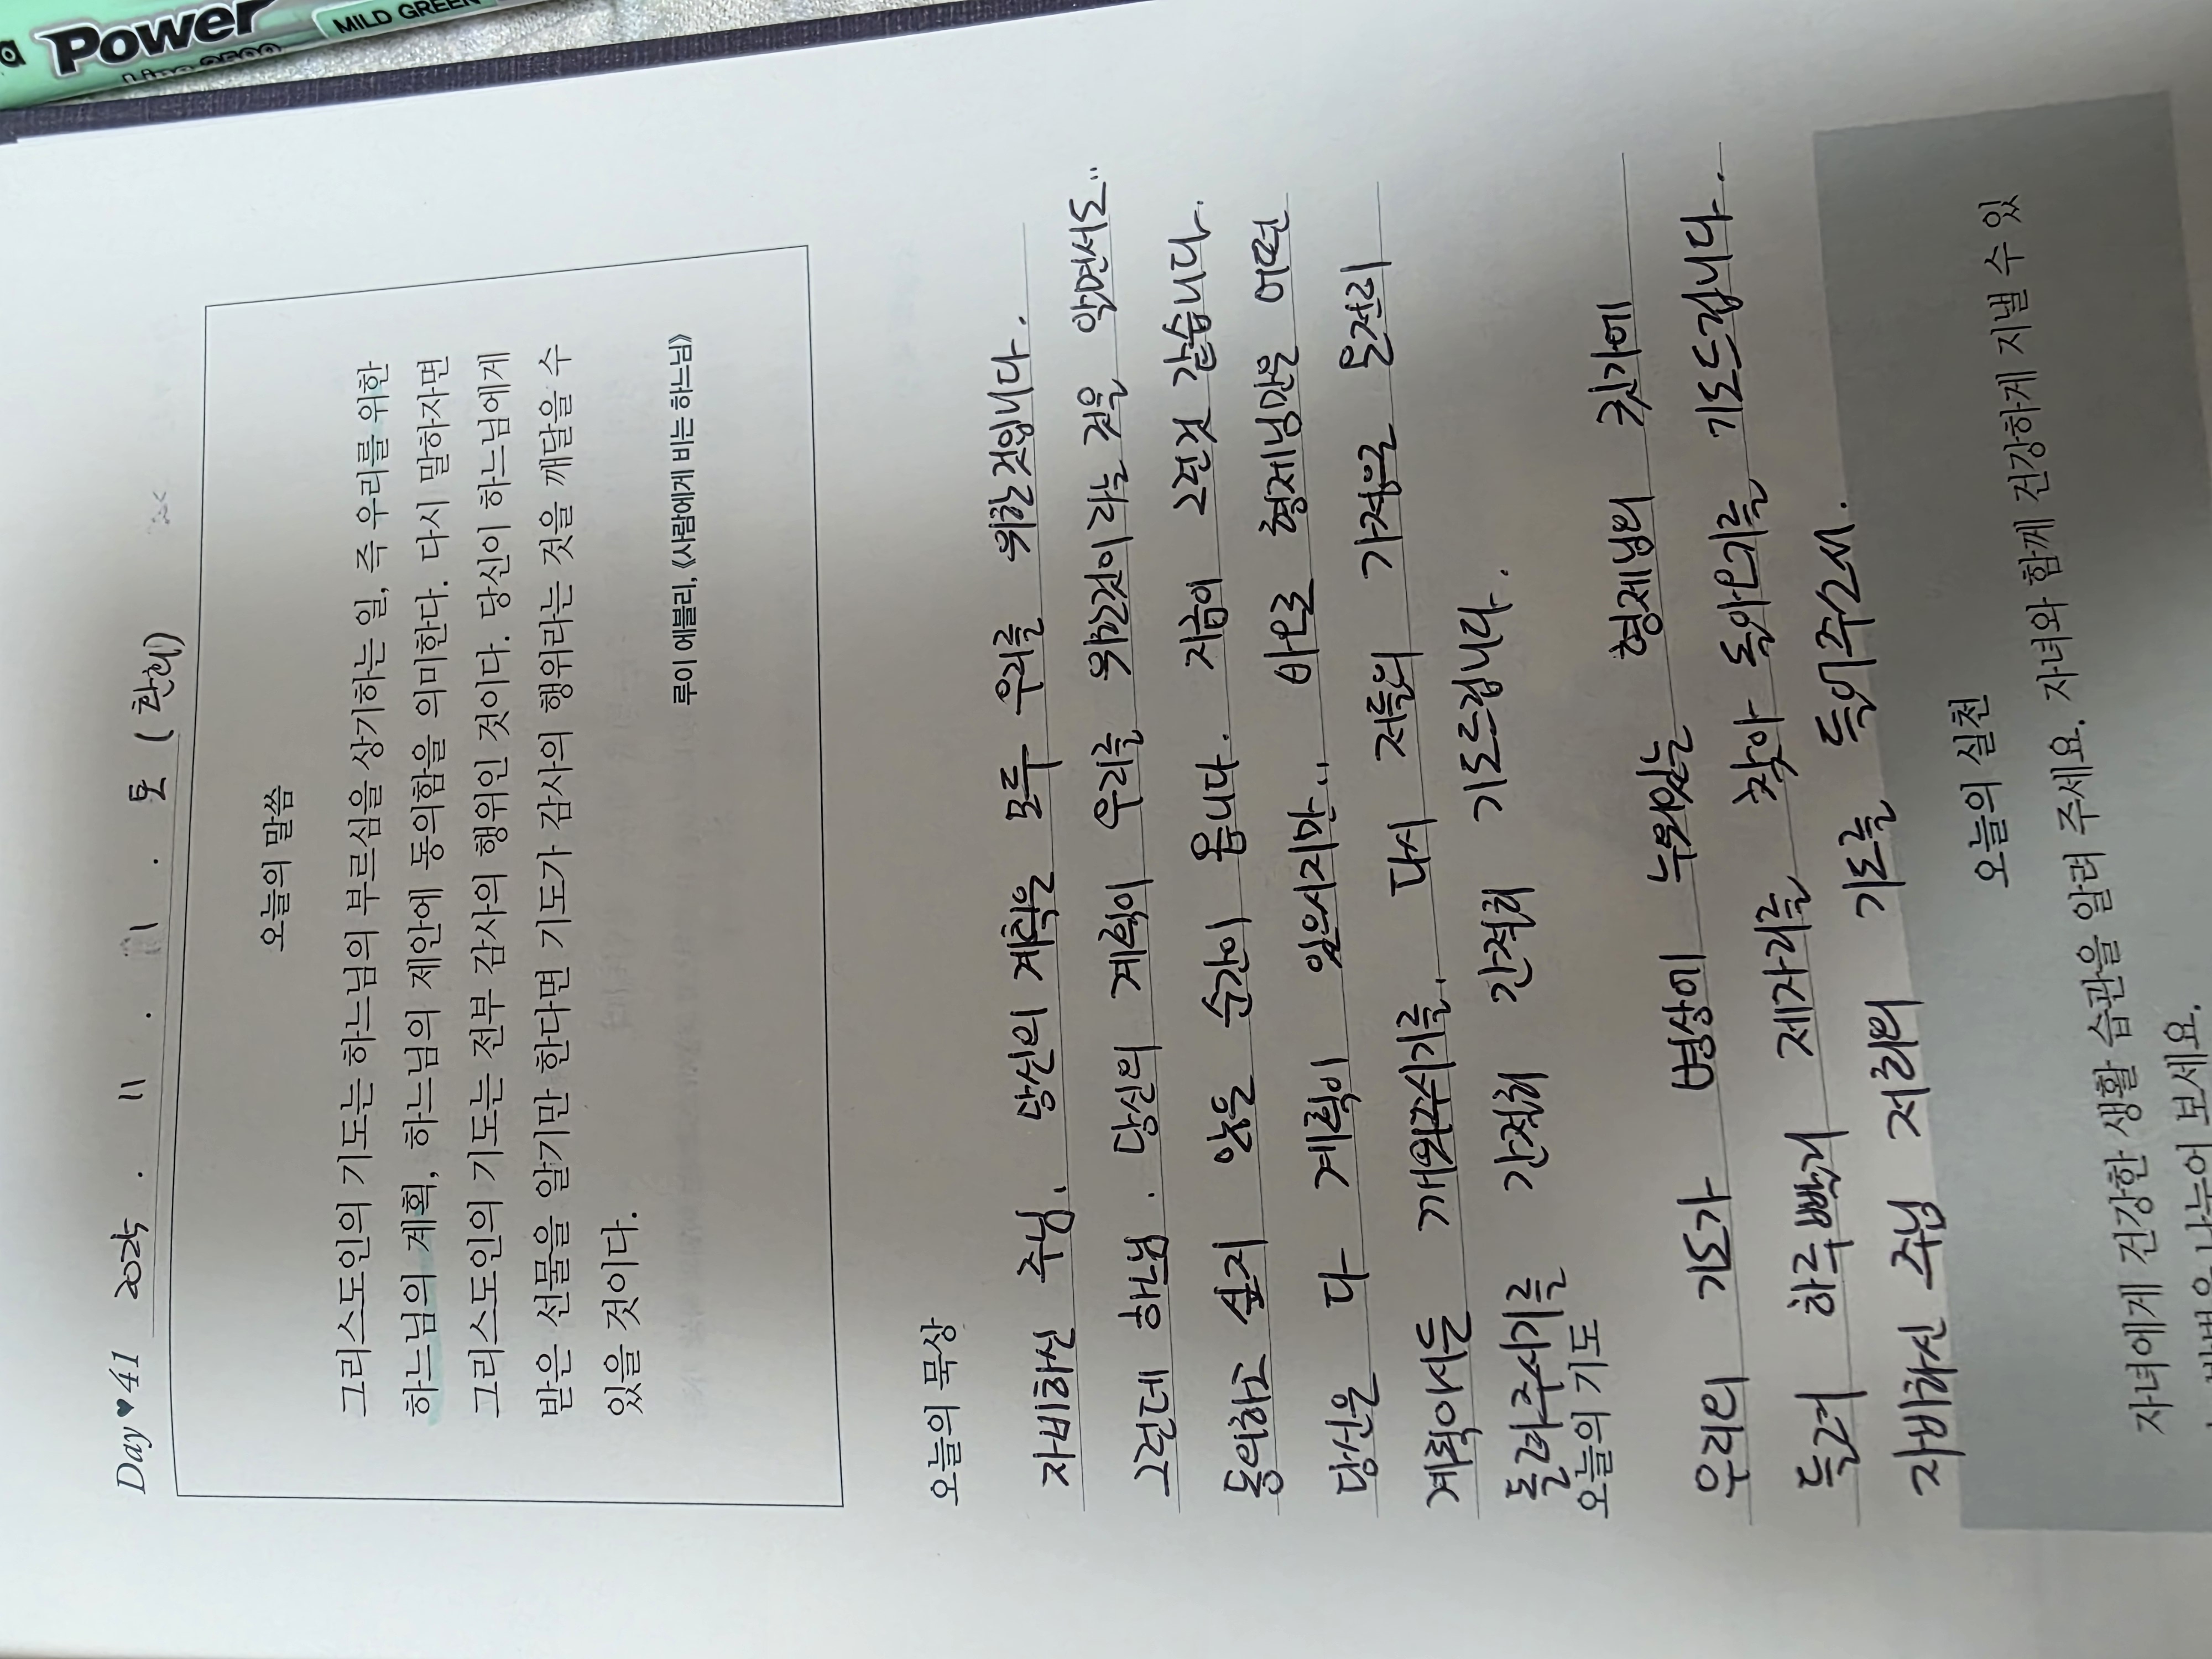 Power
MILD GREEN
Day ♥ 41 2025 . 11 . 1 . 토
오늘의 말씀
그리스도인의 기도는 하느님의 부르심을 상기하는 일, 즉 우리를 위한
하느님의 계획, 하느님의 제안에 동의함을 의미한다. 다시 말하자면
그리스도인의 기도는 전부 감사의 행위인 것이다. 당신이 하느님에게
받은 선물을 알기만 한다면 기도가 감사의 행위라는 것을 깨달을 수
있을 것이다.
루이 에블리, 《사람에게 비는 하느님》
오늘의 묵상
자비하신 주님. 당신의 계획은 모두 우리를 위한것입니다.
그런데 하느님. 당신의 계획이 우리를 위한것이라는 것을 알면서도..
동의하고 싶지 않은 순간이 옵니다. 지금이 그런것 같습니다.
당신은 다 계획이 있으시지만.. 바오로 형제님만은 어떤
계획아서든 깨워주시기를. 다시 저들의 가정을 온전히
돌려주시기를 간절히 간절히 기도드립니다.
오늘의 기도
우리의 기도가 병상에 누워있는 형제님의 귓가에
들려 하루빨리 제자리를 찾아 돌아오기를 기도드립니다.
자비하신 주님 저희의 기도를 들어주소서.
오늘의 실천
자녀에게 건강한 생활 습관을 알려 주세요. 자녀와 함께 건강하게 지낼 수 있
나누어 보세요.